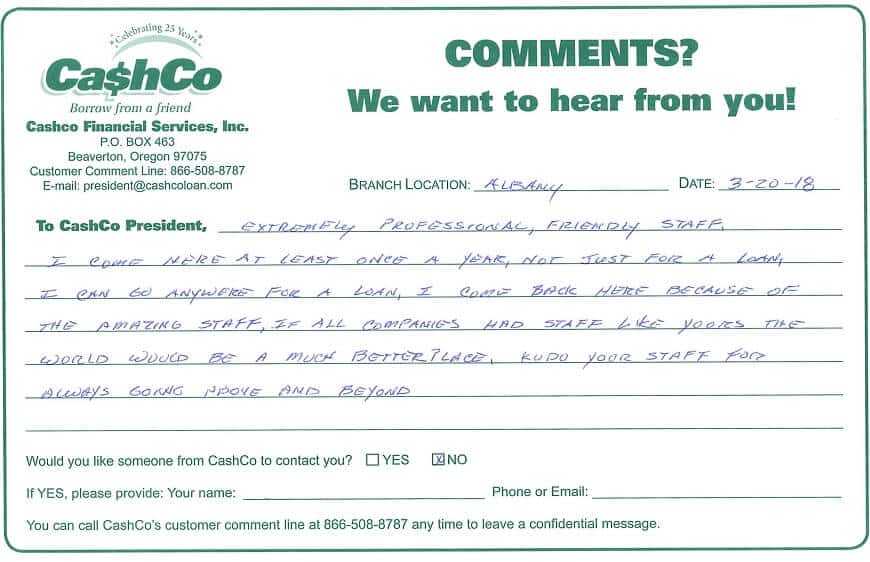 Celebrating 25 Years
Ca$hCo
Borrow from a friend
Cashco Financial Services, Inc.
P.O. BOX 463
Beaverton, Oregon 97075
Customer Comment Line: 866-508-8787
E-mail: president@cashcoloan.com
COMMENTS?
We want to hear from you!
BRANCH LOCATION: ALBANY DATE: 3-20-18
To CashCo President, EXTREMELY PROFESSIONAL, FRIENDLY STAFF.
I COME HERE AT LEAST ONCE A YEAR, NOT JUST FOR A LOAN,
I CAN GO ANYWERE FOR A LOAN, I COME BACK HERE BECAUSE OF
THE AMAZING STAFF, IF ALL COMPANIES HAD STAFF LIKE YOORS THE
WORLD WOULD BE A MUCH BETTER PLACE. KUDO YOUR STAFF FOR
ALWAYS GOING ABOVE AND BEYOND
Would you like someone from CashCo to contact you? ☐ YES ☒ NO
If YES, please provide: Your name: Phone or Email:
You can call CashCo's customer comment line at 866-508-8787 any time to leave a confidential message.